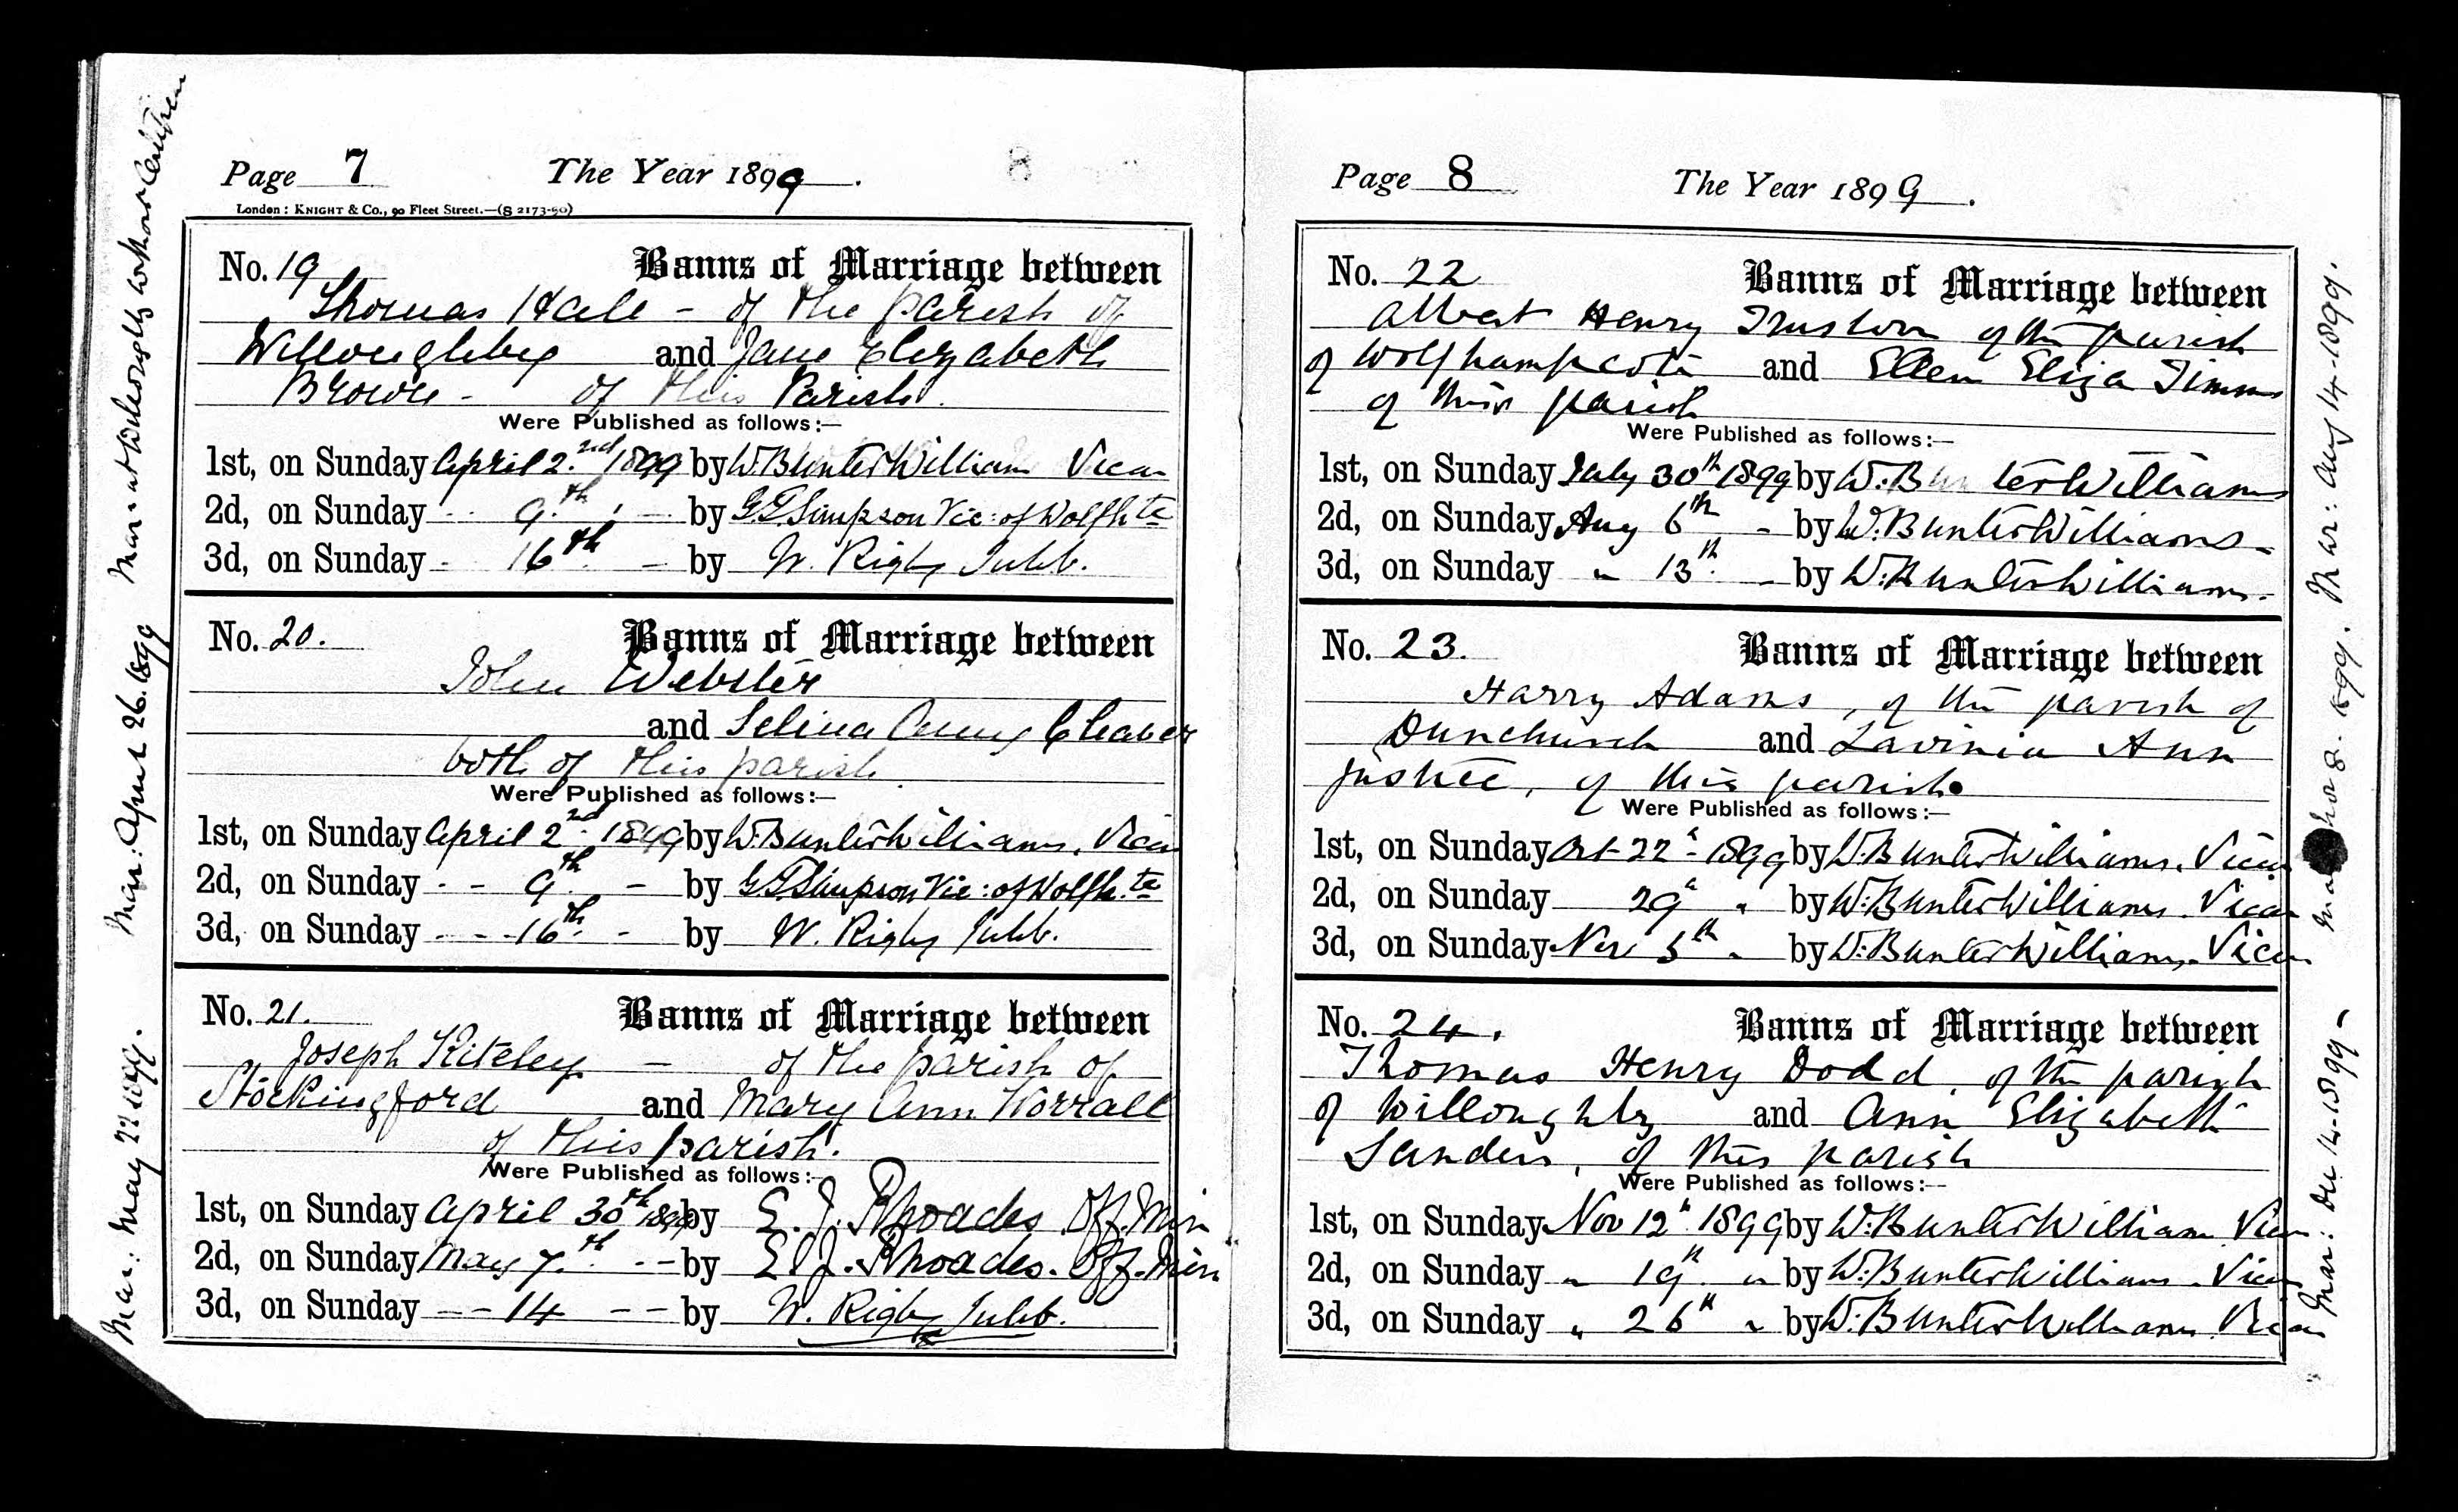 Page 7 The Year 1899.
London: KNIGHT & Co., 90 Fleet Street.—(S 2173-90)
No. 19 Banns of Marriage between
Thomas Hall - of the parish of
Willoughby and Jane Elizabeth
Brown - of this Parish.
Were Published as follows:—
1st, on Sunday April 2.nd 1899 by W. Bunter Williams Vicar
2d, on Sunday 9th by G.T. Simpson Vic: of Wolfh.te
3d, on Sunday 16th by W. Rigby Jubb.
No. 20. Banns of Marriage between
John Webster
and Selina Amy Cleaver
both of this parish
Were Published as follows:—
1st, on Sunday April 2nd 1899 by W. Bunter Williams, Vicar
2d, on Sunday - - 9th - by G.T. Simpson Vic: of Wolfh.te
3d, on Sunday - - 16th - by W. Rigby Jubb.
No. 21. Banns of Marriage between
Joseph Kiteley - of the parish of
Stockingford and Mary Ann Worrall
of this parish.
Were Published as follows:—
1st, on Sunday April 30th 1899 by E. J. Rhoades. Off. Min
2d, on Sunday May 7th - - by E. J. Rhoades. Off. Min
3d, on Sunday - - 14 - - by W. Rigby Jubb.
Mar: May 22 1899.
Mar: April 26. 1899
Mar. at Willoughby without
8
Page 8 The Year 1899.
No. 22 Banns of Marriage between
Albert Henry of the parish
of Wolfhampcote and Ellen Eliza Timms
of this parish
Were Published as follows:—
1st, on Sunday July 30th 1899 by W. Bunter Williams
2d, on Sunday Aug 6th - by W. Bunter Williams -
3d, on Sunday " 13th. - by W. Bunter Williams.
No. 23. Banns of Marriage between
Harry Adams, of the parish of
Dunchurch and Lavinia Ann
Justice, of this parish.
Were Published as follows:—
1st, on Sunday Oct 22 - 1899 by W. Bunter Williams. Vicar
2d, on Sunday 29 " by W. Bunter Williams. Vicar
3d, on Sunday Nov 5th " by W. Bunter Williams. Vicar
No. 24. Banns of Marriage between
Thomas Henry Dodd, of the parish
of Willoughby and Ann Elizabeth
Sanders, of this parish
Were Published as follows:—
1st, on Sunday Nov 12th 1899 by W. Bunter Williams Vicar
2d, on Sunday " 19th " by W. Bunter Williams. Vicar
3d, on Sunday " 26th " by W. Bunter Williams Vicar
Mar: Dec 14 - 1899 -
Nov 8. 1899.
Mar: Aug 14 - 1899.